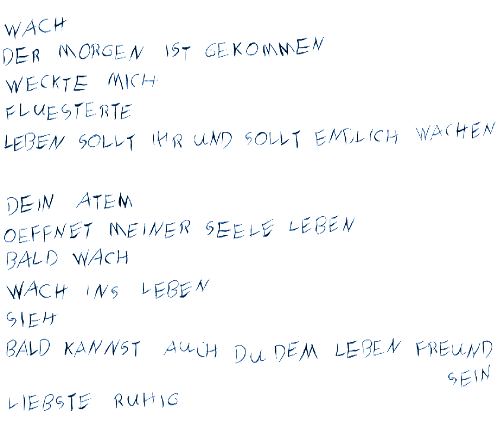 WACH
DER MORGEN IST GEKOMMEN
WECKTE MICH
FLUESTERTE
LEBEN SOLLT IHR UND SOLLT ENDLICH WACHEN
DEIN ATEM
OEFFNET MEINER SEELE LEBEN
BALD WACH
WACH INS LEBEN
SIEH
BALD KANNST AUCH DU DEM LEBEN FREUND
SEIN
LIEBSTE RUHIG